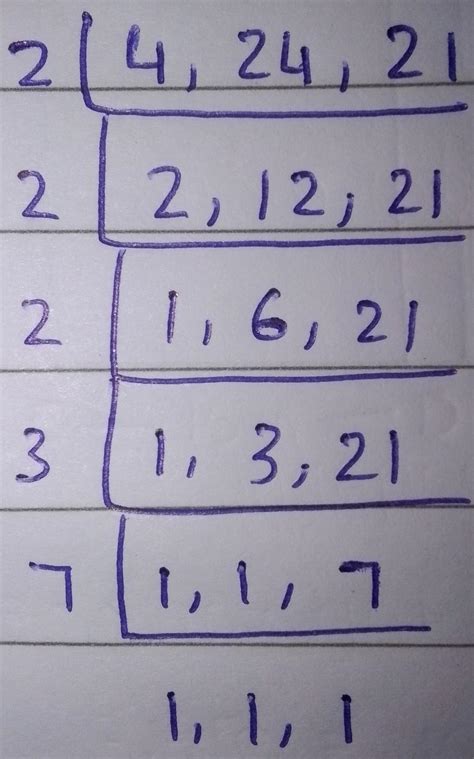 2 4, 24, 21
2 2, 12, 21
2 1, 6, 21
3 1, 3, 21
7 1, 1, 7
1, 1, 1